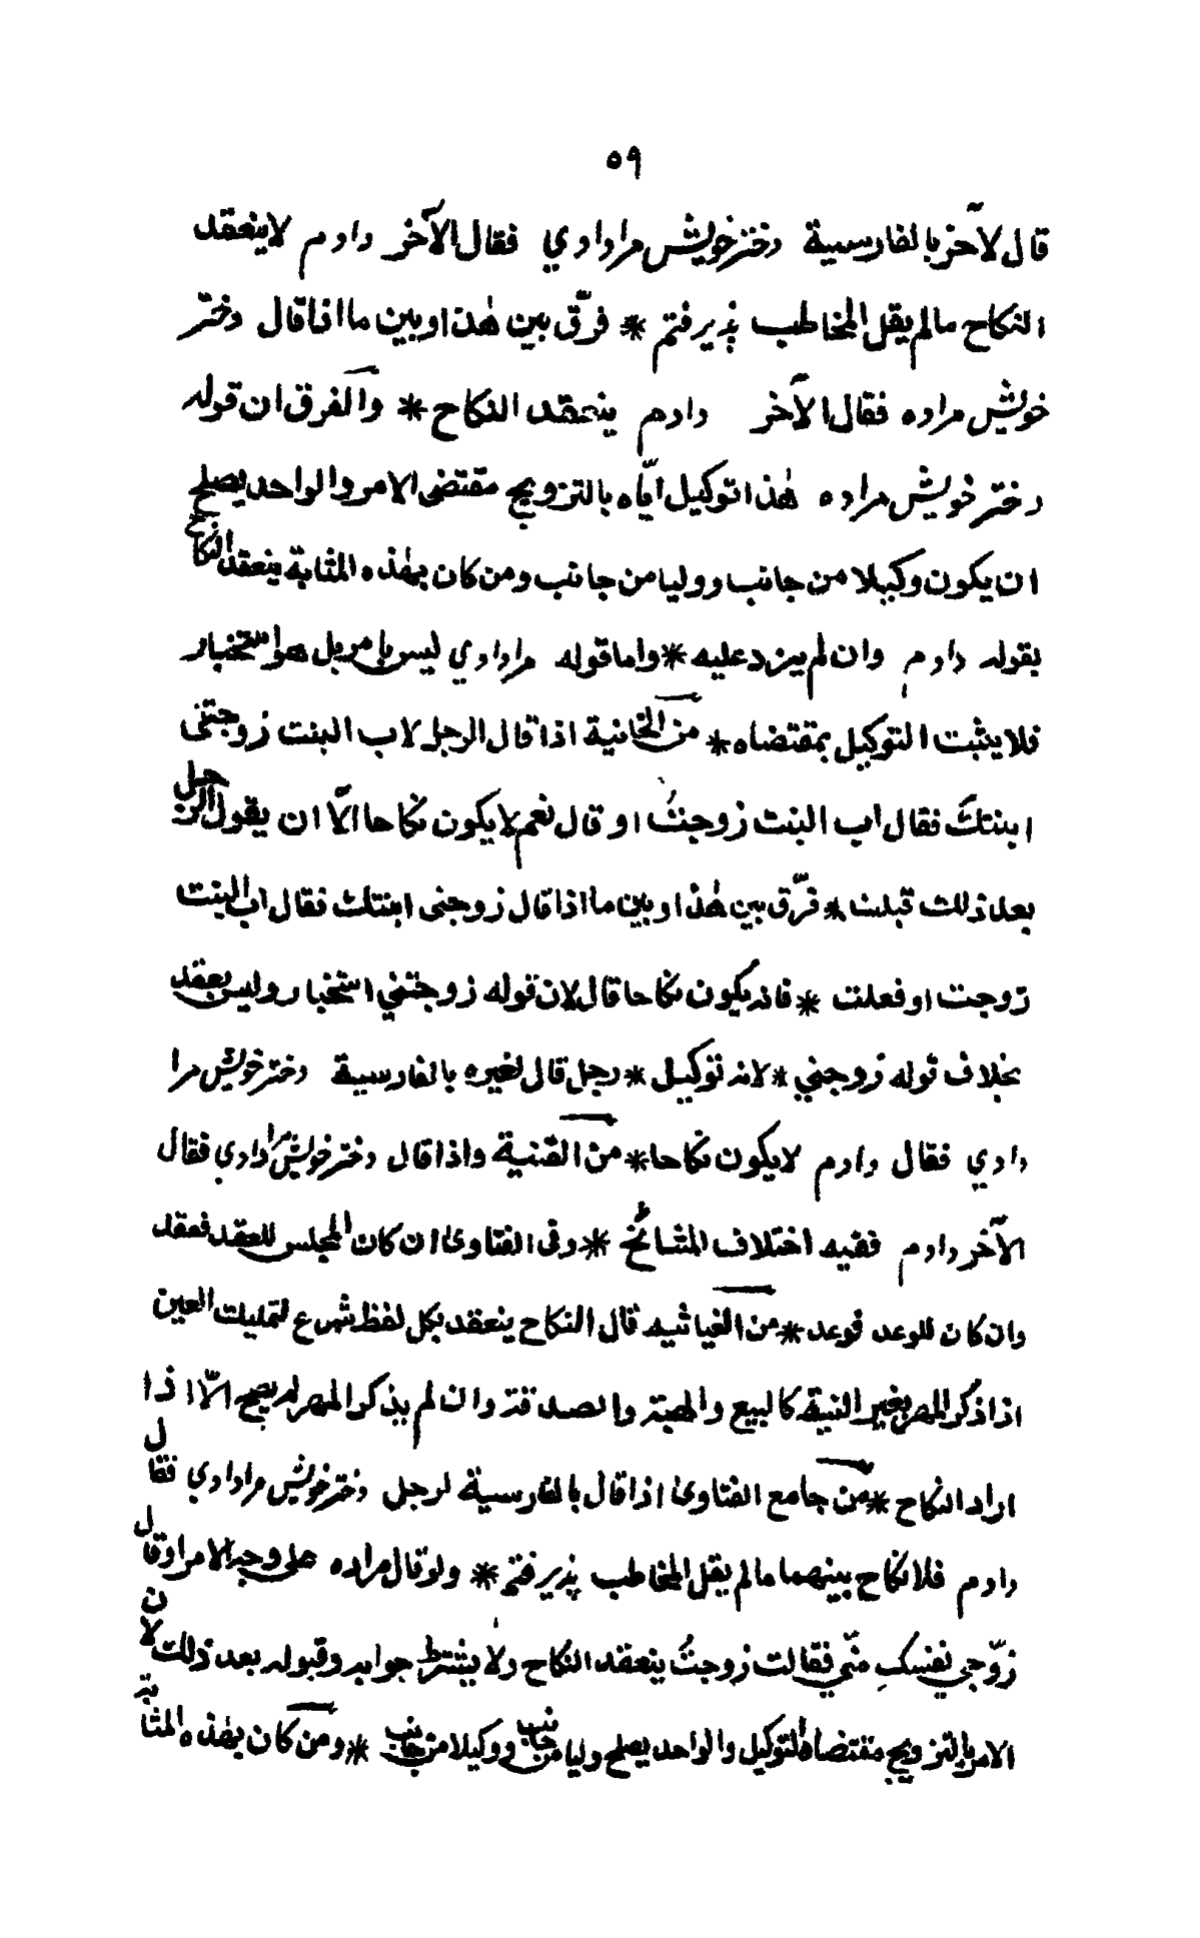 ٥٩
قال لآخر بالفارسية دختر خويش مرا دادي فقال الآخر دادم لا ينعقد
النكاح مالم يقل المخاطب پذيرفتم * فرّق بين هٰذا وبين ما اذا قال دختر
خويش مراده فقال الآخر دادم ينعقد النكاح * والفرق ان قوله
دختر خويش مراده هٰذا توكيل ايّاه بالتزويج مقتضى الامر والواحد يصلح
ان يكون وكيلا من جانب ووليا من جانب ومن كان بهٰذه المثابة ينعقد النكاح
بقوله دادم وان لم يزد عليه * واما قوله مرا دادي ليس بامر بل هو استخبار
فلا يثبت التوكيل بمقتضاه * من الخانية اذا قال الرجل لاب البنت زوجتنى
ابنتك فقال اب البنت زوجتُ او قال نعم لا يكون نكاحا الّا ان يقول الرجل
بعد ذلك قبلت * فرّق بين هٰذا وبين ما اذا قال زوجنى ابنتك فقال اب البنت
زوجت او فعلت * فانه يكون نكاحا قال لان قوله زوجتني استخبار وليس بعقد
بخلاف قوله زوجني * لانه توكيل * رجل قال لغيره بالفارسية دختر خويش مرا
دادي فقال دادم لا يكون نكاحا * من القنية واذا قال دختر خويش مرا دادي فقال
الآخر دادم ففيه اختلاف المشائخ * وفى الفتاوىٰ ان كان المجلس للعقد فعقد
وان كان للوعد فوعد * من الغياثيه قال النكاح ينعقد بكل لفظ شرع لتمليك العين
اذا ذكر المهر بغير النية كالبيع والهبة والصدقة وان لم يذكر المهر لم يصح الّا اذا
اراد النكاح * من جامع الفتاوىٰ اذا قال بالفارسية لرجل دختر خويش مرا دادي فقال
دادم فلا نكاح بينهما مالم يقل المخاطب پذيرفتم * ولو قال مراده على وجه الامر او قال
زوّجي نفسكِ منّي فقالت زوجتُ ينعقد النكاح ولا يشترط جوابه وقبوله بعد ذلك لان
الامر بالتزويج مقتضاه التوكيل والواحد يصلح وليا من جانب ووكيلا من جانب * ومن كان بهٰذه المثابة